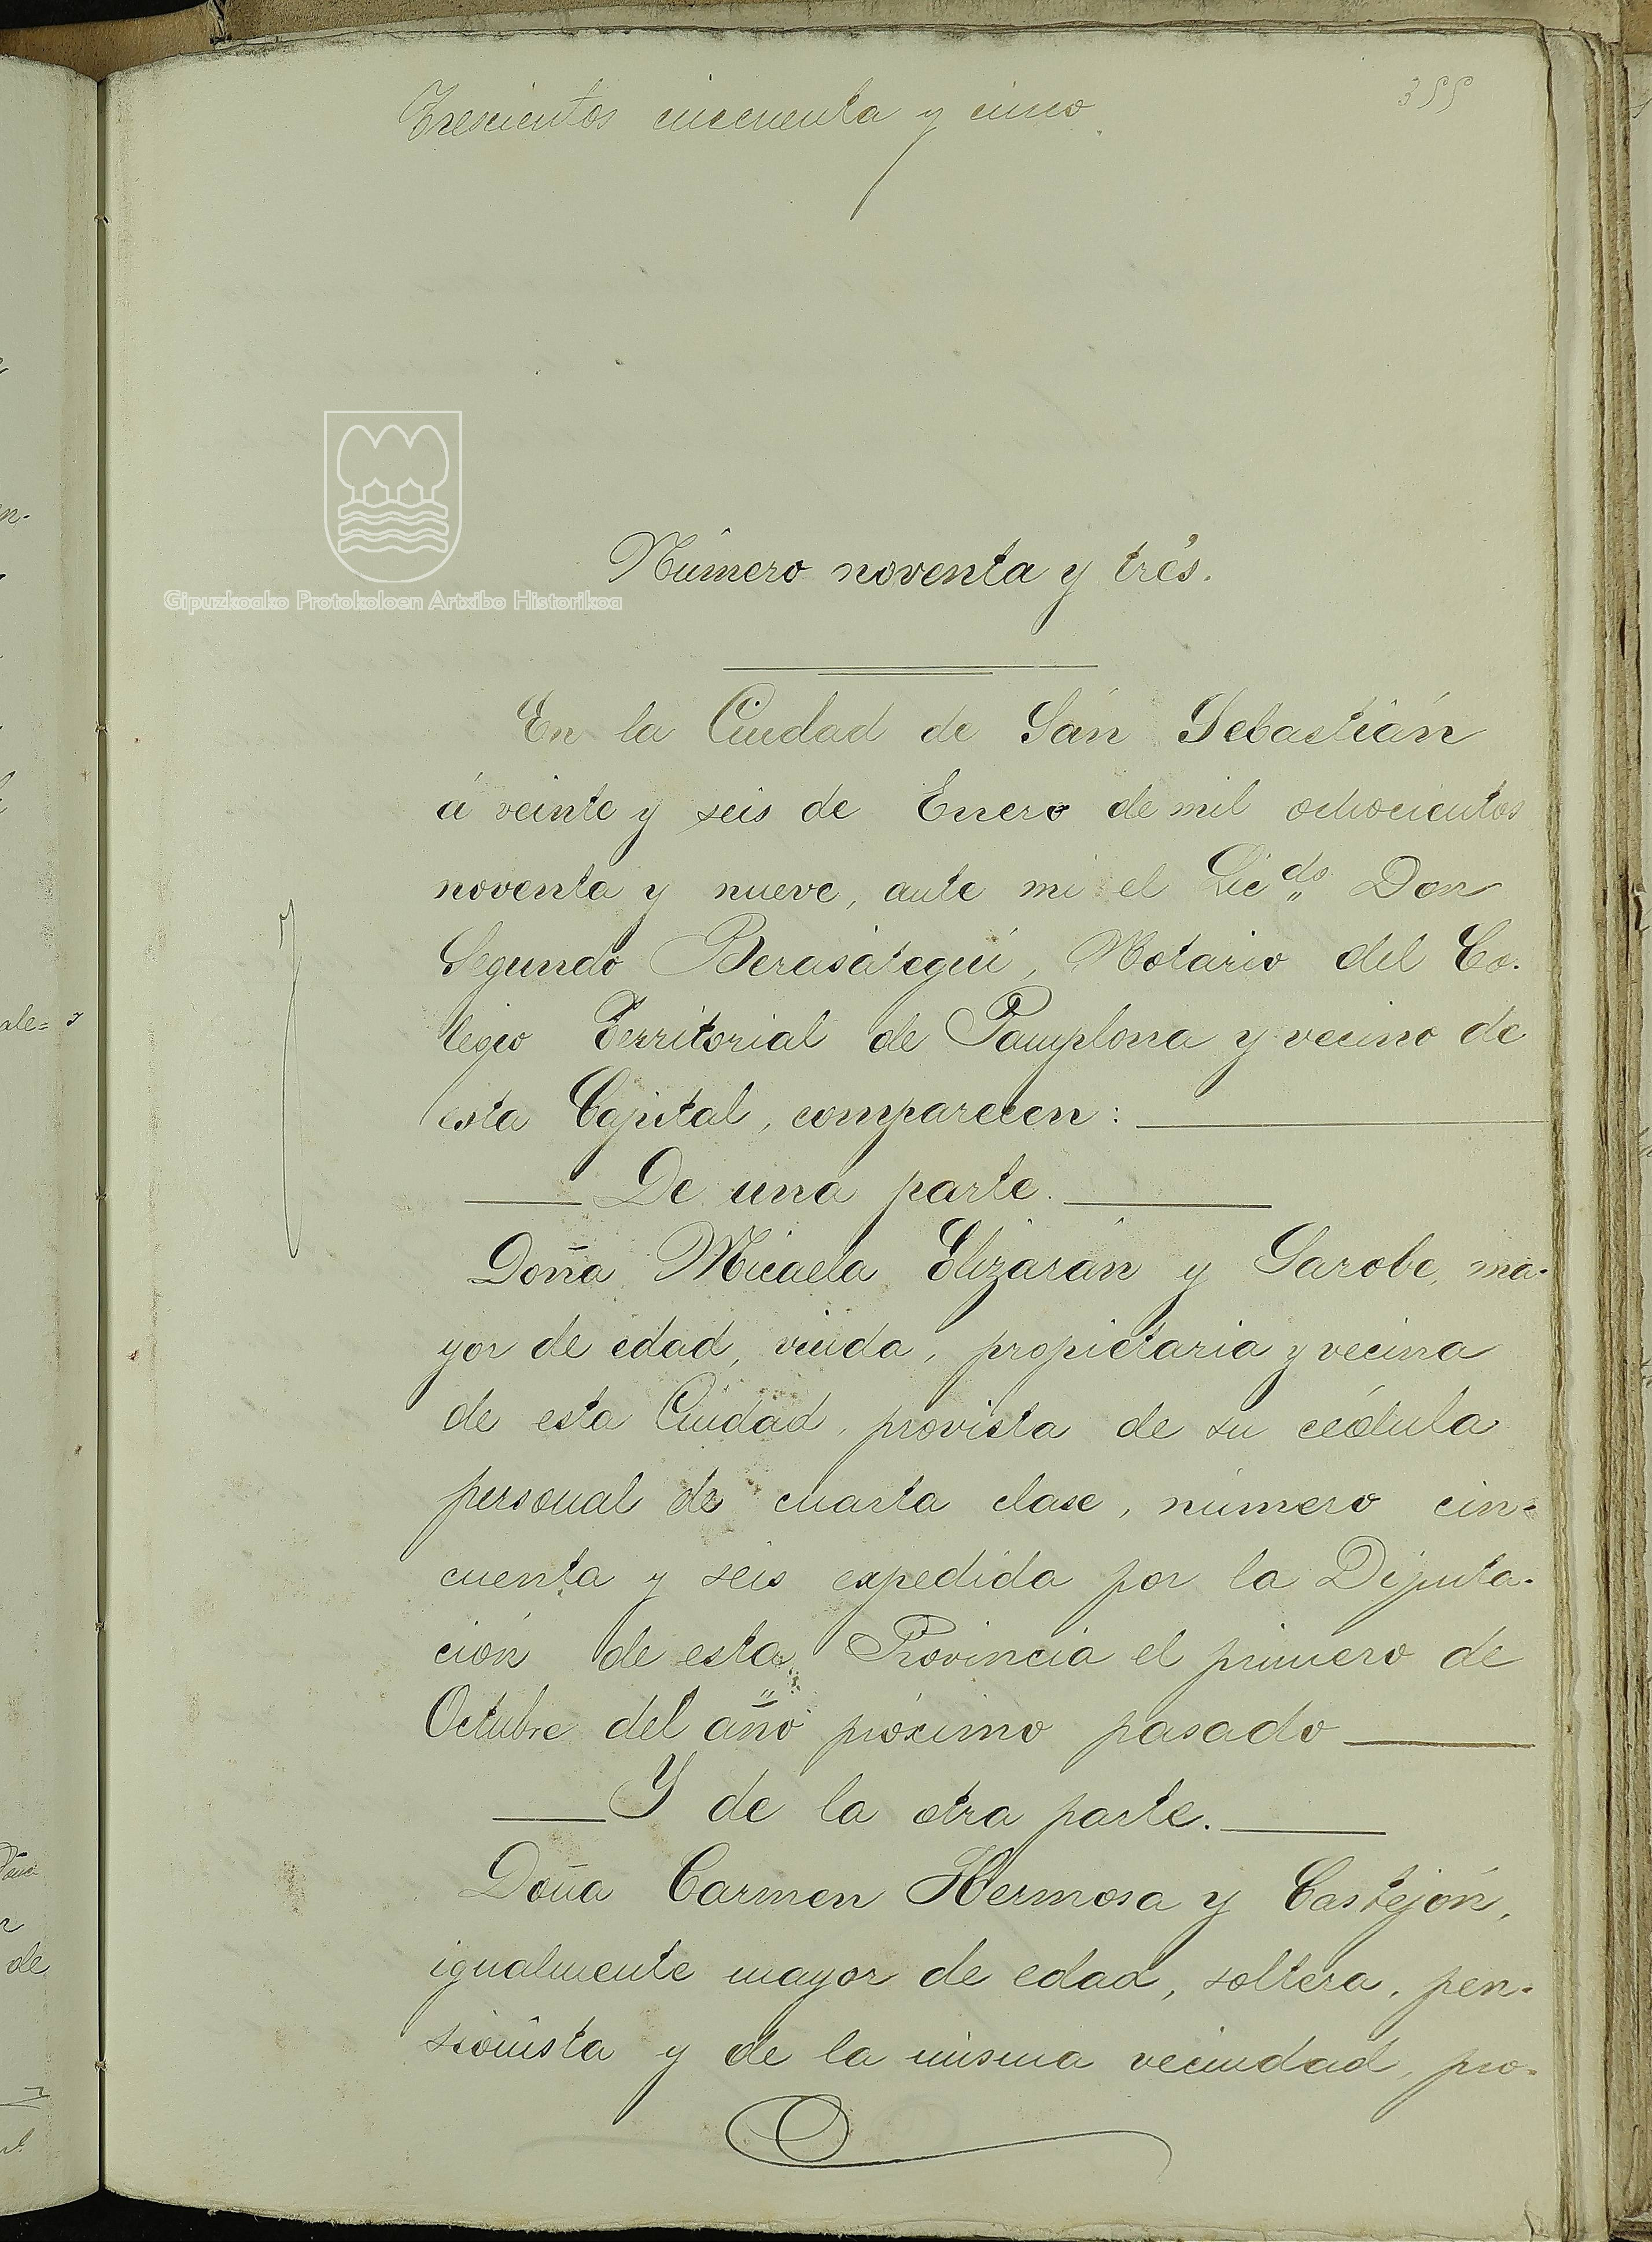 Trescientos cincuenta y cinco
355
Gipuzkoako Protokoloen Artxibo Historikoa
Número noventa y trés.
En la Ciudad de San Sebastián
á veinte y seis de Enero de mil ochocientos
noventa y nueve, ante mi el Licdo Don
Segundo Berasátegui, Notario del Co-
legio Territorial de Pamplona y vecino de
esta Capital, comparecen:
De una parte.
Doña Micaela Elizarán y Sarobe, ma-
yor de edad, viuda, propietaria y vecina
de esta Ciudad, provista de su cédula
personal de cuarta clase, número cin-
cuenta y seis expedida por la Diputa-
ción de esta Provincia el primero de
Octubre del año próximo pasado
Y de la otra parte.
Doña Carmen Hermosa y Castejón,
igualmente mayor de edad, soltera, pen-
sionista y de la misma vecindad, pro-